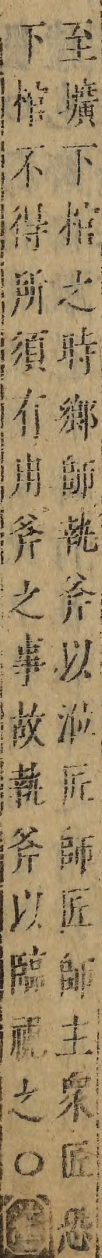 至壙下棺之時鄉師執斧以涖匠師匠師主衆匠恐
下棺不得所須有用斧之事故執斧以臨視之○